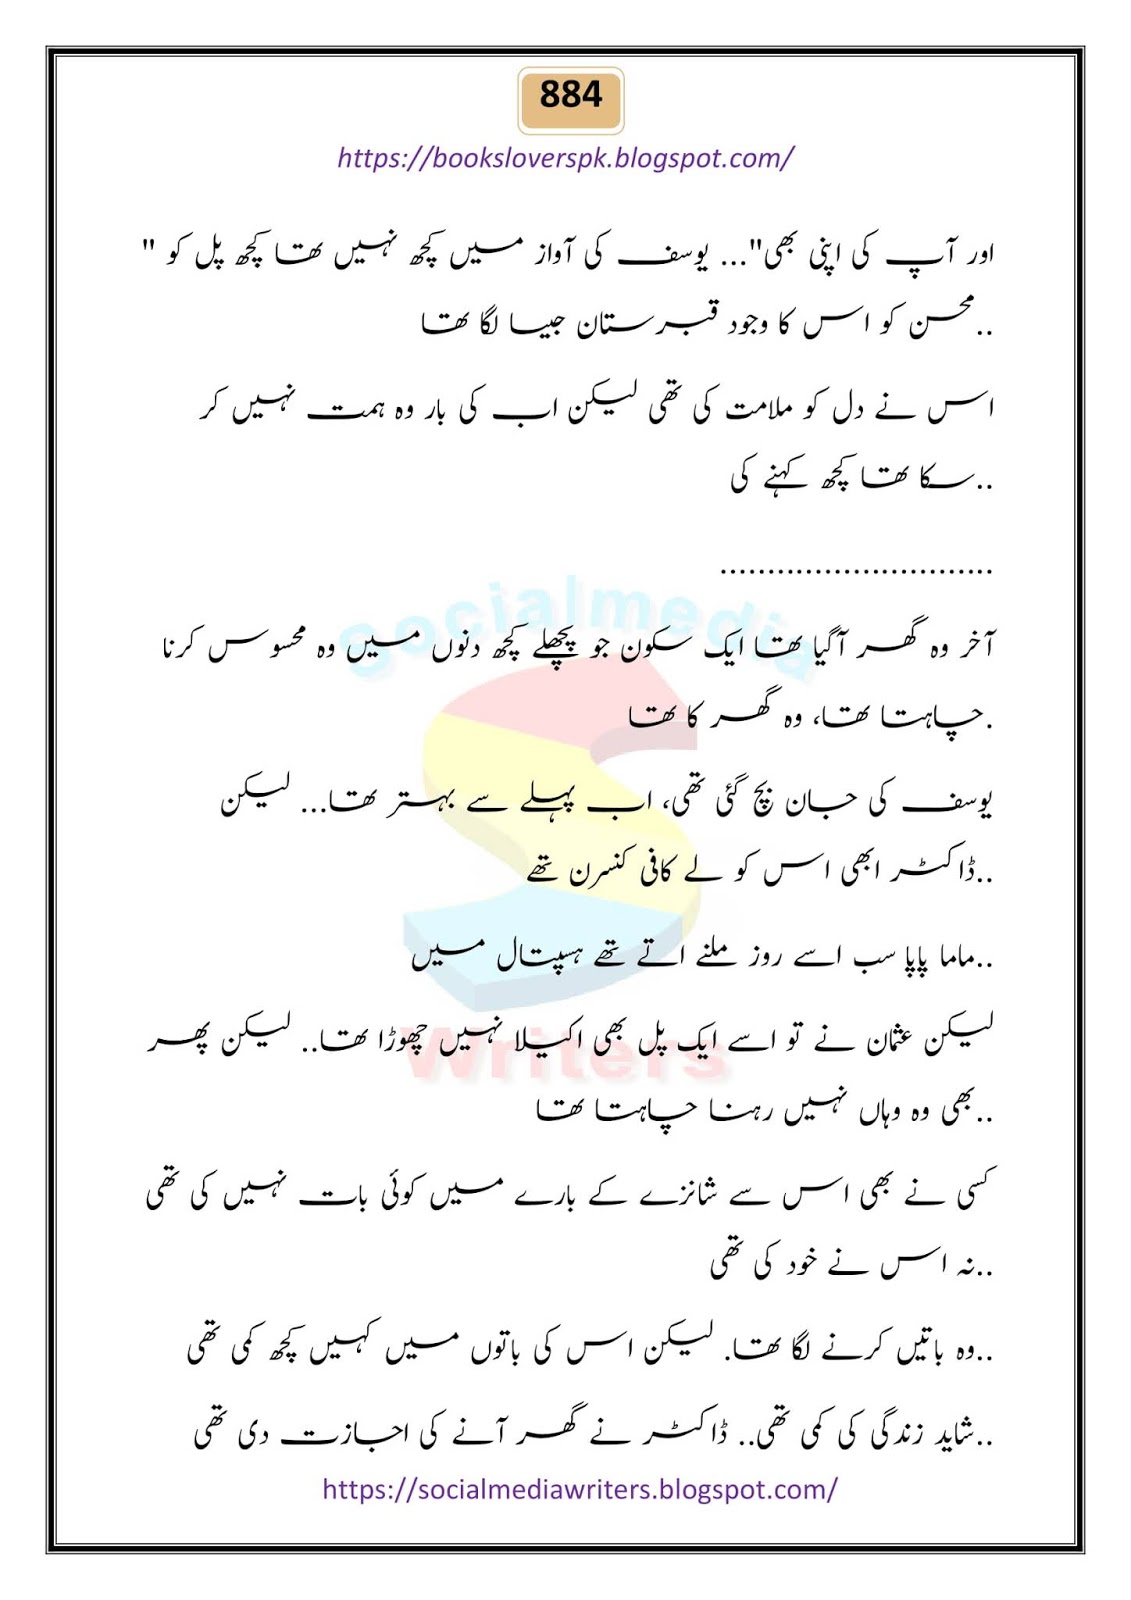 884
https://booksloverspk.blogspot.com/
اور آپ کی اپنی بھی"... یوسف کی آواز میں کچھ نہیں تھا کچھ پل کو "
..محسن کو اس کا وجود قبرستان جیسا لگا تھا
اس نے دل کو ملامت کی تھی لیکن اب کی بار وہ ہمت نہیں کر
..سکا تھا کچھ کہنے کی
.............................
آخر وہ گھر آگیا تھا ایک سکون جو پچھلے کچھ دنوں میں وہ محسوس کرنا
.چاہتا تھا، وہ گھر کا تھا
یوسف کی جان بچ گئی تھی، اب پہلے سے بہتر تھا... لیکن
..ڈاکٹر ابھی اس کو لے کافی کنسرن تھے
..ماما پاپا سب اسے روز ملنے اتے تھے ہسپتال میں
لیکن عثمان نے تو اسے ایک پل بھی اکیلا نہیں چھوڑا تھا.. لیکن پھر
..بھی وہ وہاں نہیں رہنا چاہتا تھا
کسی نے بھی اس سے شانزے کے بارے میں کوئی بات نہیں کی تھی
..نہ اس نے خود کی تھی
..وہ باتیں کرنے لگا تھا. لیکن اس کی باتوں میں کہیں کچھ کمی تھی
..شاید زندگی کی کمی تھی.. ڈاکٹر نے گھر آنے کی اجازت دی تھی
https://socialmediawriters.blogspot.com/
Socialmedia
Writers